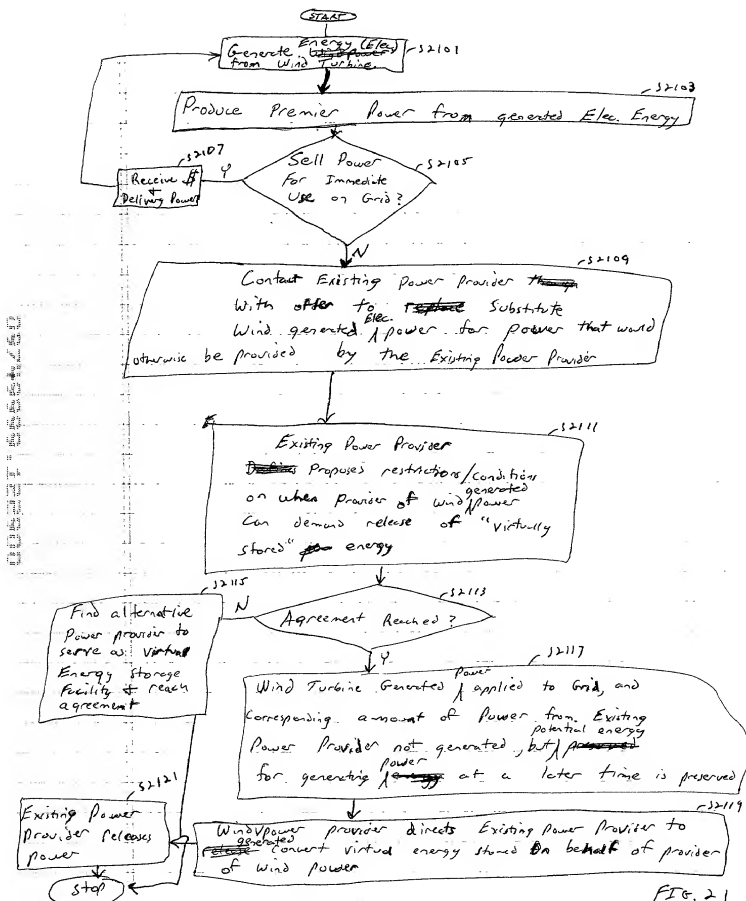 START
Generate Energy (Elec)
from Wind Turbine
S2101
S2103
Produce Premier Power from generated Elec. Energy
S2107
Receive $
+
Delivery Power
Y
Sell Power
For Immediate
Use on Grid?
S2105
N
S2109
Contact Existing power provider
With offer to Substitute
Wind generated Elec. power for power that would
otherwise be provided by the Existing Power Provider
S2111
Existing Power Provider
Proposes restrictions/conditions
on when provider of wind generated power
Can demand release of "virtually
stored" energy
S2115
Find alternative
Power provider to
serve as virtual
Energy Storage
Facility & reach
agreement
N
S2113
Agreement Reached?
Y
S2117
Wind Turbine Generated Power applied to Grid, and
Corresponding amount of Power from Existing
Power Provider not generated, but potential energy
for generating power at a later time is preserved
S2121
Existing Power
Provider releases
power
S2119
Wind generated power provider directs Existing Power Provider to
convert virtual energy stored on behalf of provider
of wind power
Stop
FIG. 21